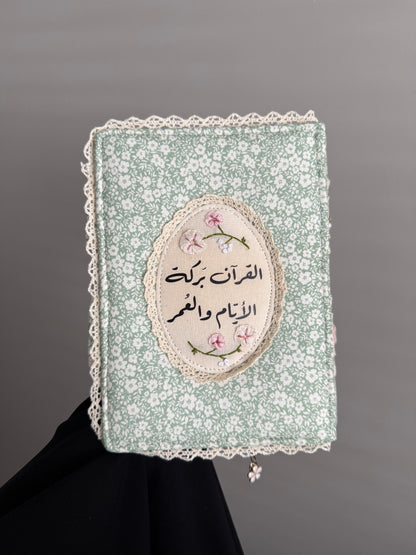 القرآن بَركة
الأيّام والعُمر